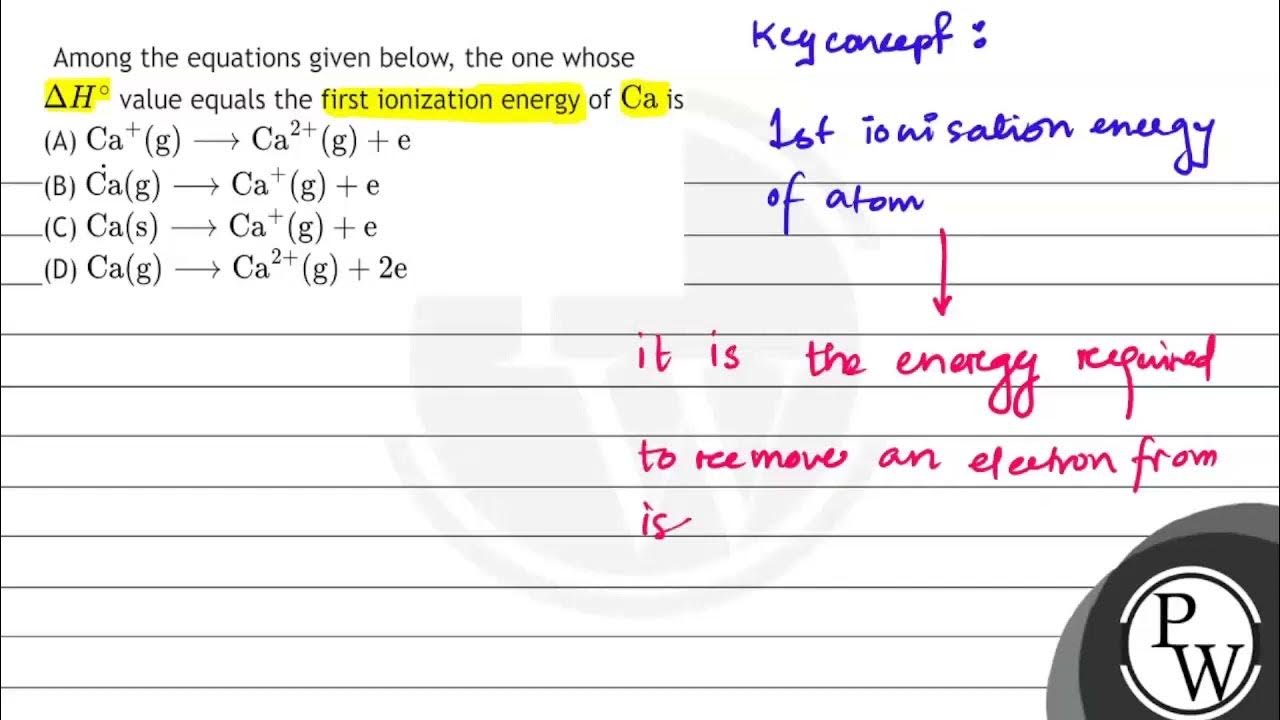 Among the equations given below, the one whose
ΔH° value equals the first ionization energy of Ca is
(A) Ca⁺(g) ⟶ Ca²⁺(g) + e
(B) Ca(g) ⟶ Ca⁺(g) + e
(C) Ca(s) ⟶ Ca⁺(g) + e
(D) Ca(g) ⟶ Ca²⁺(g) + 2e
Key concept :
1st ionisation energy
of atom
it is the energy required
to remove an electron from
is
PW